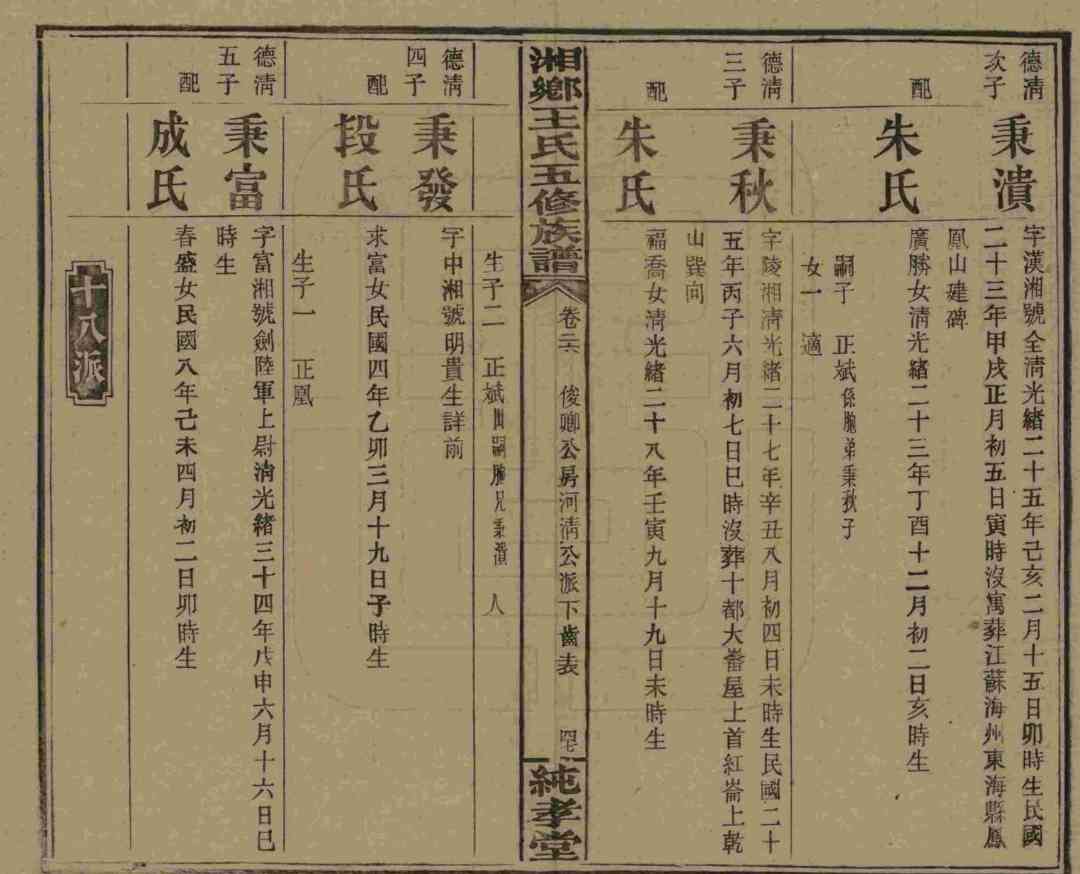 德清
次子
秉濆
字漢湘號全清光緒二十五年己亥二月十五日卯時生民國
二十三年甲戌正月初五日寅時沒寓葬江蘇海州東海縣鳳
鳳山建碑
配
朱氏
廣勝女清光緒二十三年丁酉十二月初二日亥時生
嗣子 正斌係胞弟秉秋子
女一 適
德清
三子
秉秋
字陵湘清光緒二十七年辛丑八月初四日未時生民國二十
五年丙子六月初七日巳時沒葬十都大崙屋上首紅崙上乾
山巽向
配
朱氏
福喬女清光緒二十八年壬寅九月十九日未時生
湘鄉王氏五修族譜
俊卿公房河清公派下齒表
純孝堂
生子二 正斌出嗣胞兄秉濆 人
德清
四子
秉發
字中湘號明貴生詳前
配
段氏
求富女民國四年乙卯三月十九日子時生
生子一 正凰
德清
五子
秉富
字富湘號劍陸軍上尉清光緒三十四年戊申六月十六日巳
時生
配
成氏
春盛女民國八年己未四月初二日卯時生
十八派